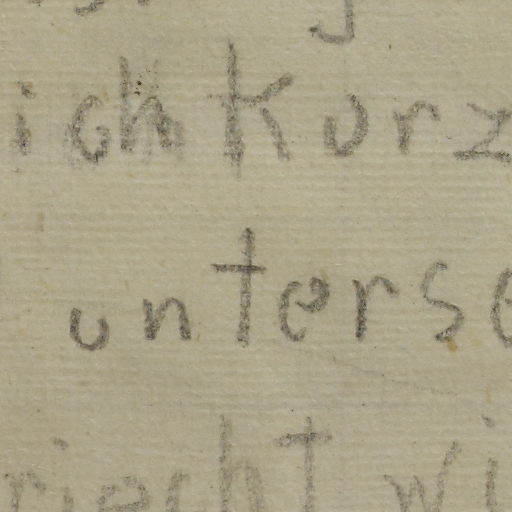 ich kurz
unterse
riecht wi